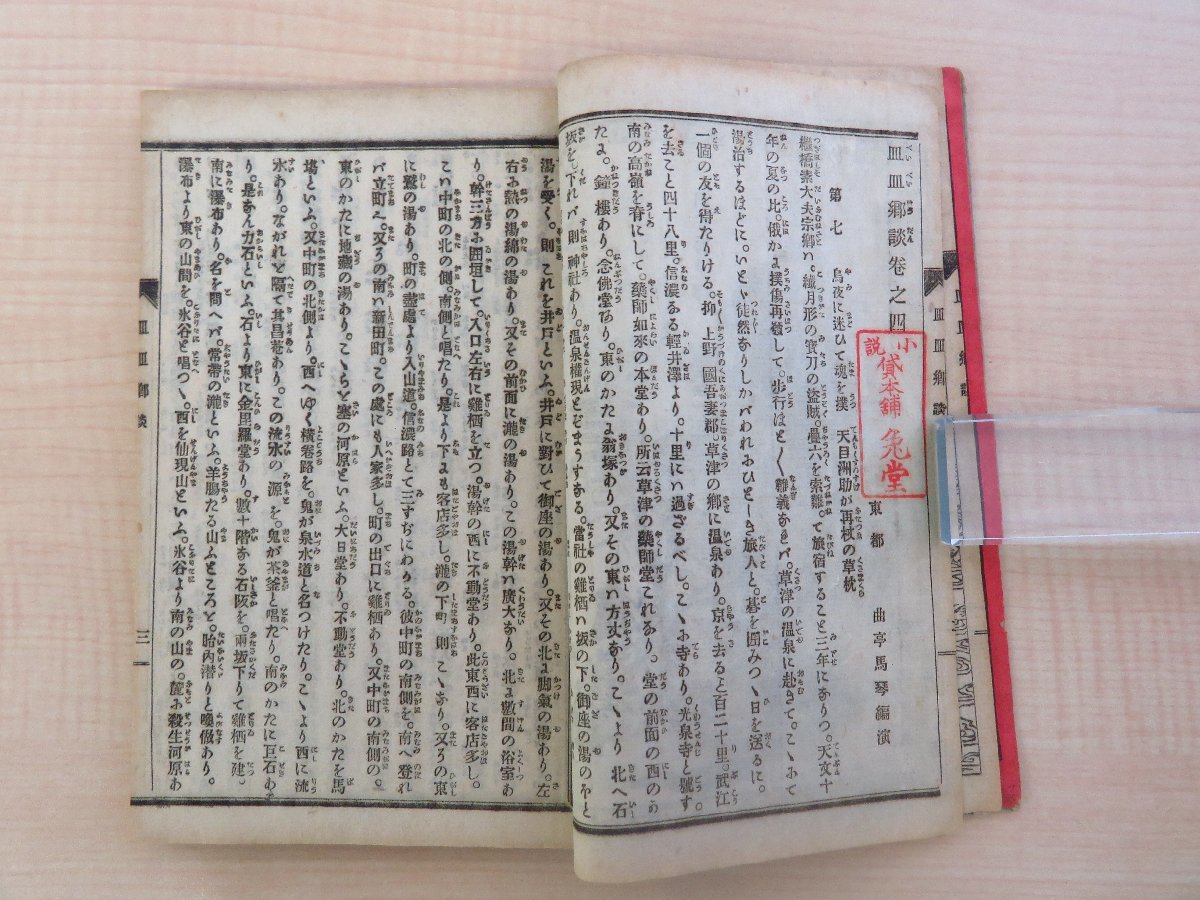 皿皿郷談卷之四
東都 曲亭馬琴編演
小説
貸本舗
兎堂
第七 烏夜に迷ひて魂を撲 天目洲助が再杖の草枕
繼橋素大夫宗郷ハ。纎月形の寳刀の盗賊。疊六を索難。て旅宿すること三年にありつ。天文十
年の夏の比。俄かよ撲傷再發して。歩行はと〱難義なれバ。草津の温泉に赴きて。こゝおて
湯治するほどに。いとゞ徒然なりしかバわれおひとーき旅人と。碁を囲みつゝ日を送るに。
一個の友を得たりける。抑上野國吾妻郡。草津の郷に温泉あり。京を去ると百二十里。武江
を去こと四十八里。信濃なる輕井澤より。十里に過ざるべし。こゝお寺あり。光泉寺と號す
南の高嶺を脊にして。藥師如來の本堂あり。所云草津の藥師堂これなり。堂の前面の西のか
たよ。鐘樓あり。念佛堂あり。東のかたよ翁塚あり。又その東ハ方丈なり。こゝより北へ石
坂を。下れバ則神社あり。温泉權現とぞまうすなる。當社の雞栖ハ坂の下。御座の湯のやと
湯を受く。則これを井戸といふ。井戸に對ひて御座の湯あり。又その北よ脚氣の湯あり。左
右お熱の湯綿の湯あり。又その前面に瀧の湯あり。この湯幹ハ廣大なり。北よ數間の浴室あ
り。幹三方お囲垣して。入口左右に雞栖を立つ。湯幹の西に不動堂あり。此東西に客店多し。
こハ中町の北の側。南側と唱へたり。是より下よも客店多し。瀧の下町則こゝなり。又ろの東
に鷲の湯あり。町の盡處より入山道。信濃路とて三すぢにわかる。彼中町の南側を。南へ登れ
バ立町也。又ろの南ハ新田町。この處にも人家多し。町の出口に雞栖あり。又中町の南側の。
東のかたに地藏の湯あり。こゝらと塞の河原といふ。大日堂あり。不動堂あり。北のかたを馬
塲といふ。又中町の北側より。西へゆく横巷路を。鬼が泉水道と名つけたり。こゝより西に流
氷あり。ながれと隔て其昌菴あり。この流氷の源を。鬼が茶釜と唱たり。南のかたに巨石あ
り。是なん力石といふ。石より東に金毘羅堂あり。數十階ある石阪を。兩坂下りて雞栖を建。
南に瀑布あり。名を問へバ。常帯の瀧といふ。羊腸たる山ふところと。胎内潜りと喚做あり。
瀑布より東の山間を。氷谷と唱つゝ。西を仙現山といふ。氷谷より南の山の。麓お殺生河原あ
皿皿郷談
三